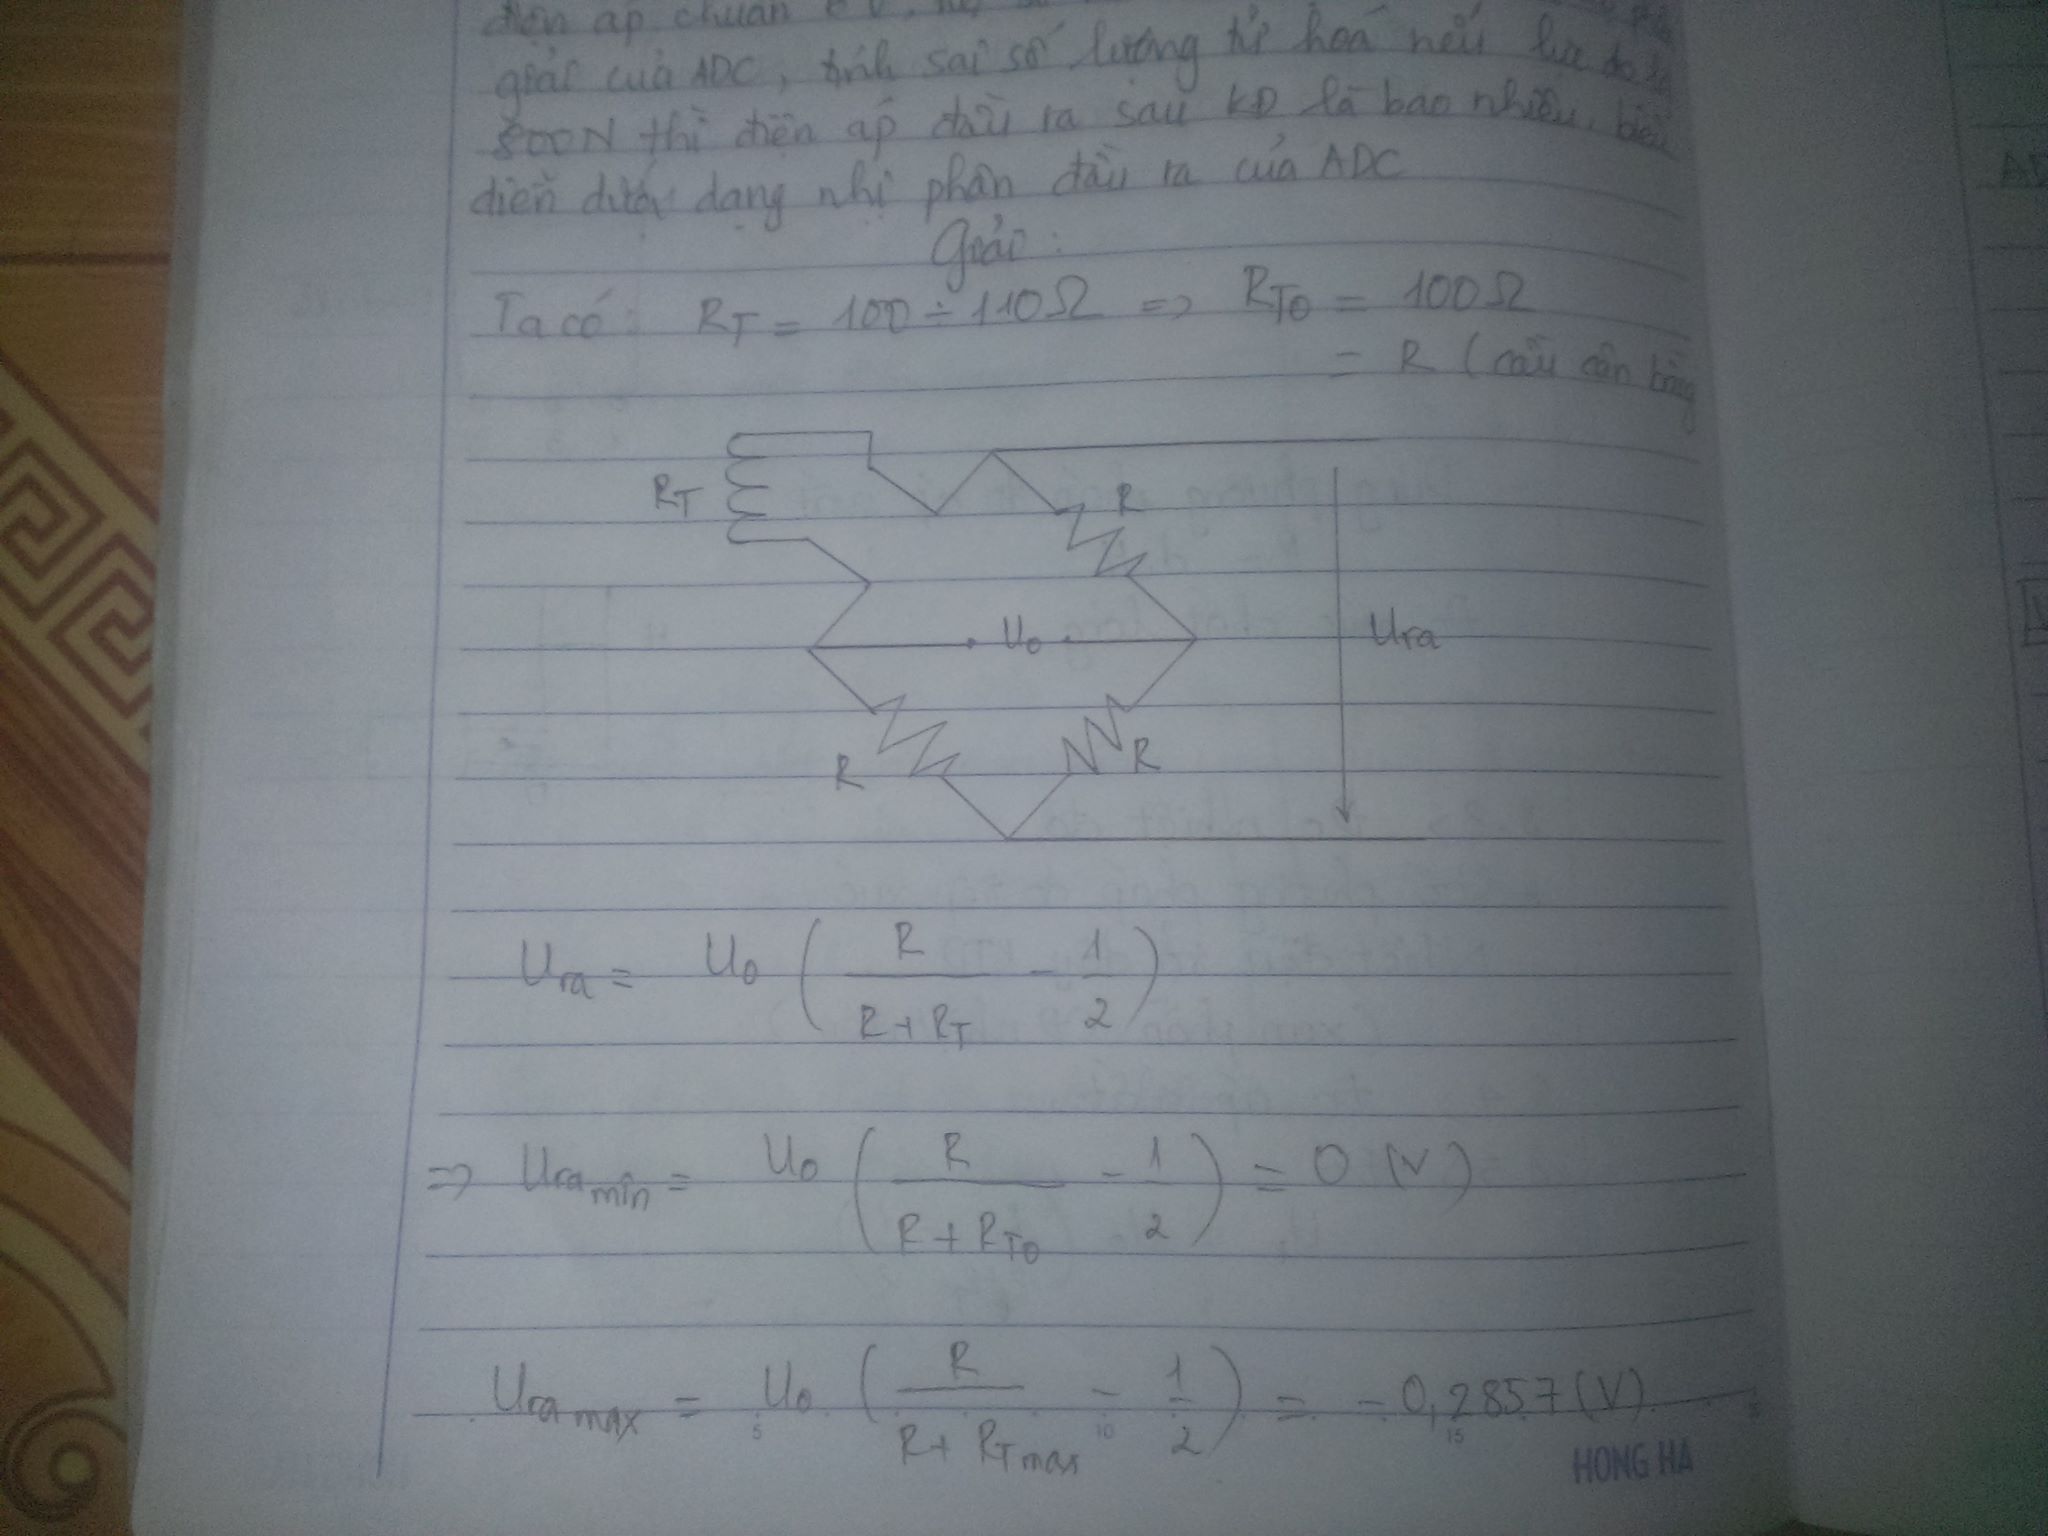 điện áp chuẩn
giải của ADC, tính sai số lượng tử hoá nếu lực đo
800N thì điện áp đầu ra sau KĐ là bao nhiêu, biểu
diễn dưới dạng nhị phân đầu ra của ADC
Giải:
Ta có: RT = 100 ÷ 110Ω => RT0 = 100Ω
= R (cầu cân bằng
RT
R
U0
Ura
R
R
Ura = U0 ( R / (R + RT) - 1/2 )
=> Ura min = U0 ( R / (R + RT0) - 1/2 ) = 0 (V)
Ura max = U0 ( R / (R + RT max) - 1/2 ) = - 0,2857 (V)
5 10 15
HONG HA